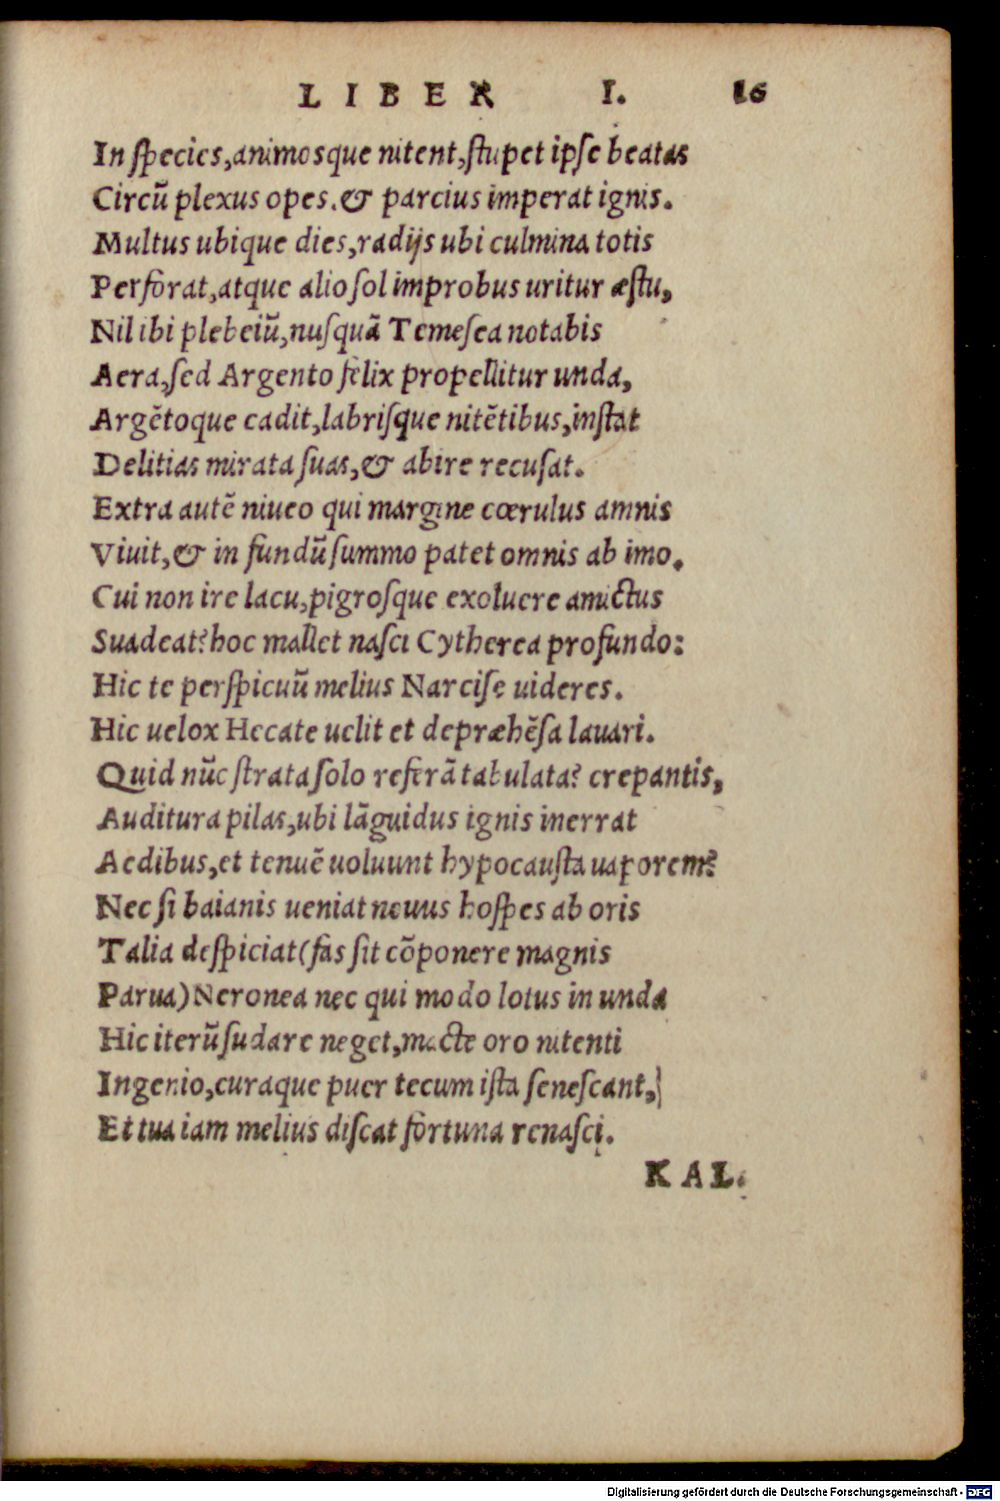 LIBER I. 16
In species,animosque nitent,stupet ipse beatas
Circū plexus opes.& parcius imperat ignis.
Multus ubique dies,radijs ubi culmina totis
Perforat,atque alio sol improbus uritur æstu,
Nil ibi plebeiū,nusquā Temesea notabis
Aera,sed Argento felix propellitur unda,
Argētoque cadit,labrisque nitētibus,instat
Delitias mirata suas,& abire recusat.
Extra autē niueo qui margine cœrulus amnis
Viuit,& in fundū summo patet omnis ab imo.
Cui non ire lacu,pigrosque exoluere amictus
Suadeat?hoc mallet nasci Cytherea profundo:
Hic te perspicuū melius Narcise uideres.
Hic uelox Hecate uelit et depræhēsa lauari.
Quid nūc strata solo referā tabulata? crepantis,
Auditura pilas,ubi lāguidus ignis inerrat
Aedibus,et tenuē uoluunt hypocausta uaporem?
Nec si baianis ueniat nouus hospes ab oris
Talia despiciat(fas sit cōponere magnis
Parua)Neronea nec qui modo lotus in unda
Hic iterū sudare neget,macte oro nitenti
Ingenio,curaque puer tecum ista senescant,
Et tua iam melius discat fortuna renasci.
KAL.
Digitalisierung gefördert durch die Deutsche Forschungsgemeinschaft - DFG